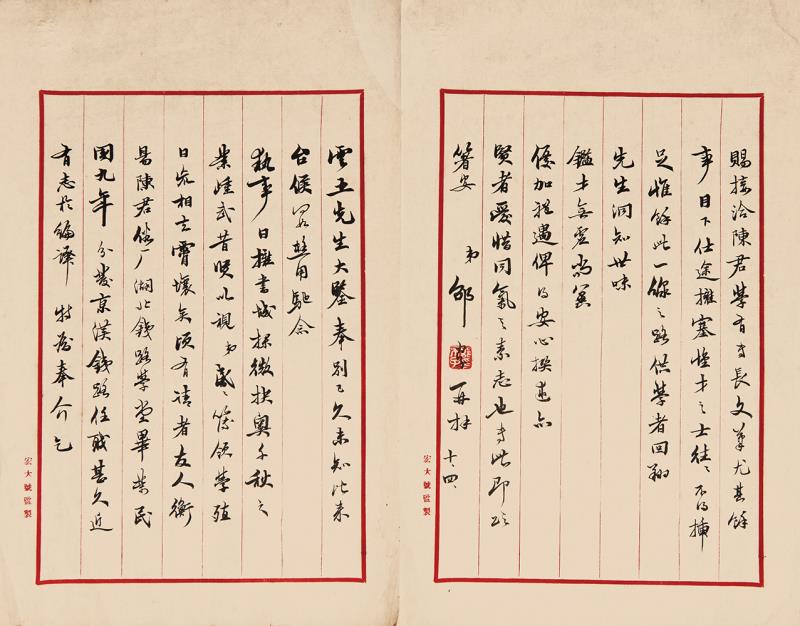 雲五先生大鑒奉別已久未知比來
台候 馳念
執事日擁書城探微抉奧千秋之
業 武昔賢以視弟 簿領學殖
日荒相去霄壤矣頃有請者友人衡
昜陳君俗厂湖北鐵路學堂畢業民
國九年分發京漢鐵路任職甚久近
有志於編譯特為奉介乞
宏大號監製
賜接洽陳君學有專長文筆尤其餘
事目下仕途擁塞懷才之士往往不得插
足惟餘此一線之路供學者回翔
先生洞知世味
鑑才無虛尚冀
優加禮遇俾得安心撰述亦
賢者愛惜同氣之素志也專此即頌
箸安 弟邵 再拜 十、四
宏大號監製